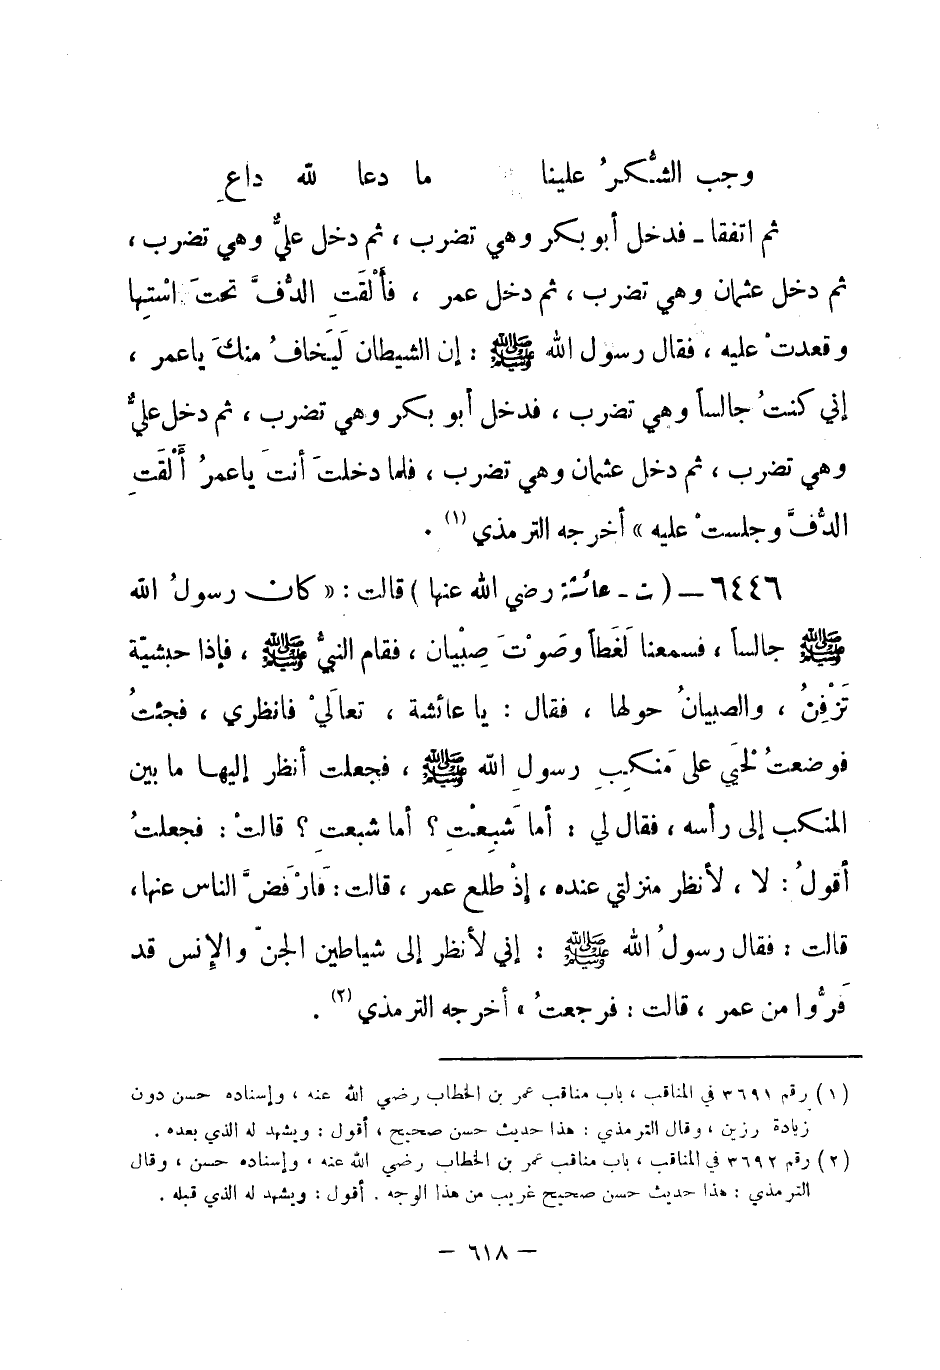 وجب الشُّكرُ علينا ما دعا لله داعِ
ثم اتفقا ـ فدخل أبو بكر وهي تضرب ، ثم دخل عليٌّ وهي تضرب ،
ثم دخل عثمان وهي تضرب ، ثم دخل عمر ، فأَلْقَتِ الدُّفَّ تحتَ اسْتِها
وقعدتْ عليه ، فقال رسول الله ﷺ : إن الشيطان لَيَخافُ منكَ ياعمر ،
إني كنتُ جالساً وهي تضرب ، فدخل أبو بكر وهي تضرب ، ثم دخل عليٌّ
وهي تضرب ، ثم دخل عثمان وهي تضرب ، فلما دخلتَ أنتَ ياعمرُ أَلْقَتِ
الدُّفَّ وجلستْ عليه » أخرجه الترمذي (١) .
٦٤٤٦ ــ ( ت ـ عائشة رضي الله عنها ) قالت : « كان رسولُ الله
ﷺ جالساً ، فسمعنا لَغَطاً وصَوْتَ صِبْيان ، فقام النبيُّ ﷺ ، فإذا حبشيّة
تَزْفِنُ ، والصبيانُ حولها ، فقال : يا عائشة ، تعالَيْ فانظري ، فجئتُ
فوضعتُ لَحْيَي على مَنكِبِ رسولِ الله ﷺ ، فجعلت أنظر إليها ما بين
المنكب إلى رأسه ، فقال لي : أما شَبِعْتِ ؟ أما شبعتِ ؟ قالتْ : فجعلتُ
أقولُ : لا ، لأنظر منزلتي عنده ، إذْ طلع عمر ، قالت : فَارْفَضَّ الناس عنها ،
قالت : فقال رسولُ الله ﷺ : إني لأنظر إلى شياطين الجنّ والإنس قد
فَرُّوا من عمر ، قالت : فرجعتُ » أخرجه الترمذي (٢) .
(١) رقم ٣٦٩١ في المناقب ، باب مناقب عمر بن الخطاب رضي الله عنه ، وإسناده حسن دون
زيادة رزين ، وقال الترمذي : هذا حديث حسن صحيح ، أقول : ويشهد له الذي بعده .
(٢) رقم ٣٦٩٢ في المناقب ، باب مناقب عمر بن الخطاب رضي الله عنه ، وإسناده حسن ، وقال
الترمذي : هذا حديث حسن صحيح غريب من هذا الوجه . أقول : ويشهد له الذي قبله .
– ٦١٨ –